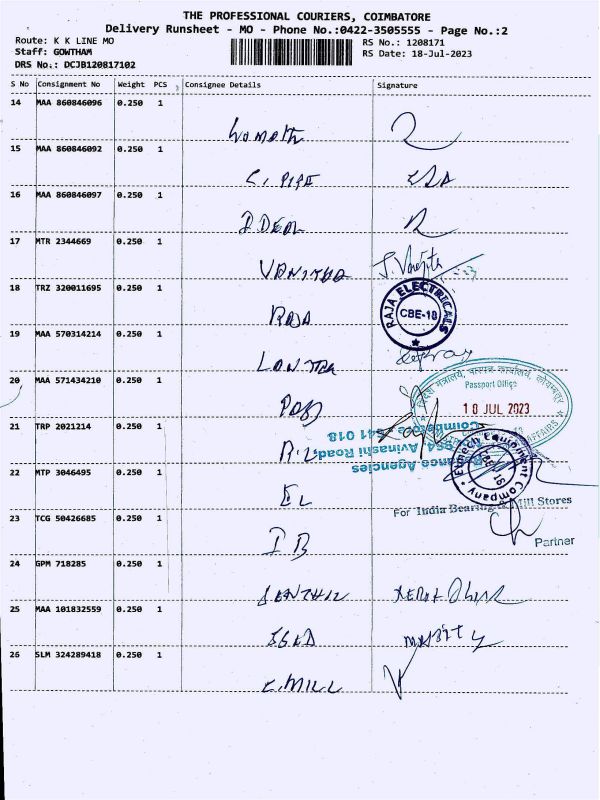 THE PROFESSIONAL COURIERS, COIMBATORE
Delivery Runsheet - MO - Phone No.:0422-3505555 - Page No.:2
Route: K K LINE MO
Staff: GOWTHAM
DRS No.: DCJB120817102
RS No.: 1208171
RS Date: 18-Jul-2023
S No Consignment No Weight PCS Consignee Details Signature
14 MAA 860846096 0.250 1
15 MAA 860846092 0.250 1
16 MAA 860846097 0.250 1
IDEAL
17 MTR 2344669 0.250 1
VANITHA
18 TRZ 320011695 0.250 1
RAJA
RAJA ELECTRICALS
CBE-18
19 MAA 570314214 0.250 1
20 MAA 571434210 0.250 1
Passport Office
18 JUL 2023
21 TRP 2021214 0.250 1
Avinashi Road,
641 018
22 MTP 3046495 0.250 1
EL
Equipment Company
For India Bearing & Mill Stores
Partner
23 TCG 50426685 0.250 1
IB
24 GPM 718285 0.250 1
SENTHIL
25 MAA 101832559 0.250 1
26 SLM 324289418 0.250 1
E.MILL